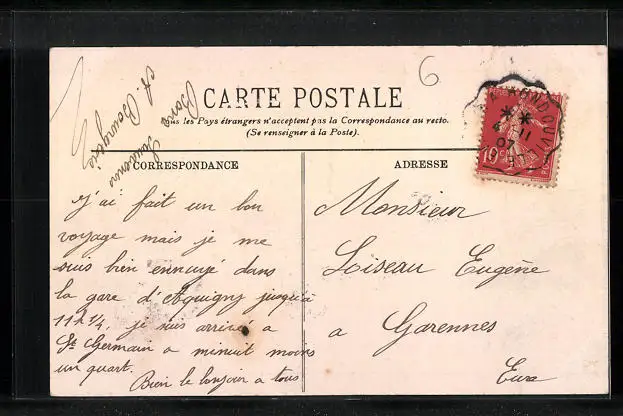 6
CARTE POSTALE
Tous les Pays étrangers n'acceptent pas la Correspondance au recto.
(Se renseigner à la Poste).
CORRESPONDANCE
ADRESSE
Bons Souvenirs
A. Bourgeois
J'ai fait un bon
voyage mais je me
suis bien ennuyé dans
la gare d'Aquigny jusqu'a
11h 1/4, je suis arrivé a
St Germain a minuit moins
un quart.
Bien le bonjour a tous
Monsieur
Loiseau Eugène
a Garennes
Eure
10
11
07